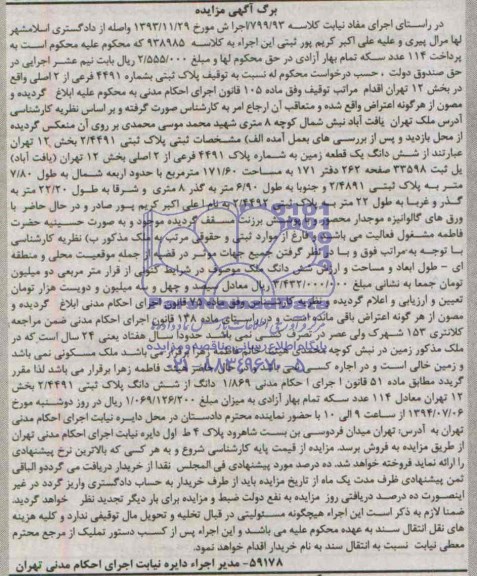 برگ آگهی مزایده
در راستای اجرای مفاد نیابت کلاسه ۷۹۹/۹۳اجرا ش مورخ ۱۳۹۳/۱۱/۲۹ واصله از دادگستری اسلامشهر
لها مرال پیری و علیه علی اکبر کریم پور ثبتی این اجراء به کلاسه ۹۳۸۹۸۵ که محکوم علیه محکوم است به
پرداخت ۱۱۴ عدد سکه تمام بهار آزادی در حق محکوم لها و مبلغ ۲/۵۵۵/۰۰۰ ریال بابت نیم عشر اجرایی در
حق صندوق دولت ، حسب درخواست محکوم له نسبت به توقیف پلاک ثبتی بشماره ۴۴۹۱ فرعی از ۲ اصلی واقع
در بخش ۱۲ تهران اقدام مراتب توقیف وفق ماده ۱۰۵ قانون اجرای احکام مدنی به محکوم علیه ابلاغ گردیده و
مصون از هرگونه اعتراض واقع شده و متعاقب آن ارجاع امر به کارشناس صورت گرفته و بر اساس نظریه کارشناسی
آدرس ملک تهران یافت آباد نبش شمال کوچه ۸ متری شهید محمد موسی محمدی بر روی آن منعکس گردیده
از محل بازدید و پس از بررسی های بعمل آمده الف) مشخصات ثبتی پلاک ثبتی ۲/۴۴۹۱ بخش ۱۲ تهران
عبارتند از شش دانگ یک قطعه زمین به شماره پلاک ۴۴۹۱ فرعی از ۲ اصلی بخش ۱۲ تهران (یافت آباد)
یل ثبت ۳۳۵۹۸ صفحه ۲۶۲ دفتر ۱۷۱ به مساحت ۱۷۱/۶۰ مترمربع با حدود اربعه شمال به طول ۷/۸۰
متر به پلاک ثبتی ۲/۴۸۹۱ و جنوبا به طول ۶/۹۰ متر به گذر ۸ متری و شرقا به طول ۲۲/۲۰ متر به
گذر و غربا به طول ۲۲ متر به پلاک ثبتی ۲/۴۴۹۲ به نام علی اکبر کریم پور صادر و در حال حاضر با
ورق های گالوانیزه موجدار محصور با پوشش برزنت مسقف گردیده موجود و به صورت حسینیه حضرت
فاطمه مشغول فعالیت می باشد فارغ از موارد ثبتی و حقوقی مرتب به ملک مذکور ب) نظریه کارشناسی
با توجه به مراتب فوق و با در نظر گرفتن جمیع جهات موثر در قضیه از جمله موقعیت محلی و منطقه
ای - طول ابعاد و مساحت و ارزش شش دانگ ملک موصوف در شرایط کنونی از قرار متر مربعی دو میلیون
تومان جمعا به نشانی مبلغ ۳/۴۳۲/۰۰۰/۰۰۰ ریال معادل سیصد و چهل و سه میلیون و دویست هزار تومان
تعیین و ارزیابی و اعلام گردیده و نظریه کارشناس وفق ماده ۷۵ قانون اجرای احکام مدنی ابلاغ گردیده و
مصون از هر گونه اعتراض باقی مانده است و در راستای ماده ۱۳۸ قانون اجرای احکام مدنی ضمن مراجعه
کلانتری ۱۵۳ شهرک ولی عصر در تصرف حدودا سال هفتاد یعنی ۲۴ سال است که در
ملک مذکور زمین در نبش کوچه محمدی هیئت خانم فاطمه زهرا برقرار می باشد ملک مسکونی نمی باشد
و زمین خالی است و در اجاره کسی نمی باشد فاطمه زهرا برقرار می باشد لذا مقرر
گردید مطابق ماده ۵۱ قانون ا جرای ا حکام مدنی ۱/۸۶۹ دانگ از شش دانگ پلاک ثبتی ۲/۴۴۹۱ بخش
۱۲ تهران معادل ۱۱۴ عدد سکه تمام بهار آزادی به میزان مبلغ ۱/۰۶۹/۱۲۶/۲۰۰ ریال در روز دوشنبه مورخ
۱۳۹۴/۰۷/۰۶ از ساعت ۹ الی ۱۰ با حضور نماینده محترم دادستان در محل دایره نیابت اجرای احکام مدنی
تهران به آدرس: تهران میدان فردوسی بن بست شاهرود پلاک ۴ ط اول دایره نیابت اجرای احکام مدنی تهران
از طریق مزایده به فروش برسد. مزایده از قیمت پایه کارشناسی شروع و به هر کسی که بالاترین نرخ پیشنهادی
را ارائه نماید فروخته خواهد شد. ده درصد مورد پیشنهادی فی المجلس نقدا از خریدار دریافت می گرددو الباقی
ثمن پیشنهادی ظرف مدت یک ماه از تاریخ مزایده باید از طرف خریدار به حساب دادگستری واریز گردد در غیر
اینصورت ده درصد دریافتی روز مزایده به نفع دولت ضبط و مزایده برای بار دیگر تجدید نظر خواهد گردید.
ضمنا لازم به ذکر است این اجراء هیچگونه مسئولیتی در قبال تخلیه و تحویل مال توقیفی ندارد و کلیه هزینه
های نقل انتقال سند به عهده محکوم علیه می باشد و این اجراء پس از کسب دستور تملیک از مرجع محترم
معطی نیابت نسبت به انتقال سند به نام خریدار اقدام خواهد نمود.
۵۹۱۷۸- مدیر اجراء دایره نیابت اجرای احکام مدنی تهران